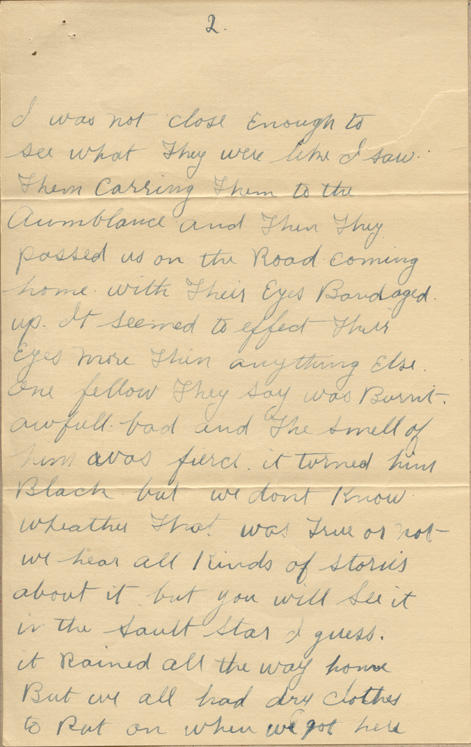 2.
I was not close Enough to
see what They were like I saw
Them Carring Them to the
Aumblance and Then They
passed us on the Road coming
home with Their Eyes Bandaged.
up. It seemed to effect Their
Eyes more Then anything Else.
One fellow They say was Burnt.
awfull bad and The smell of
him was fierce. it turned him
Black but we dont Know
wheather That was True or not
we hear all Kinds of stories
about it but you will See it
in the Sault Star I guess.
it Rained all the way home
But we all had dry clothes
to Put on when we got here